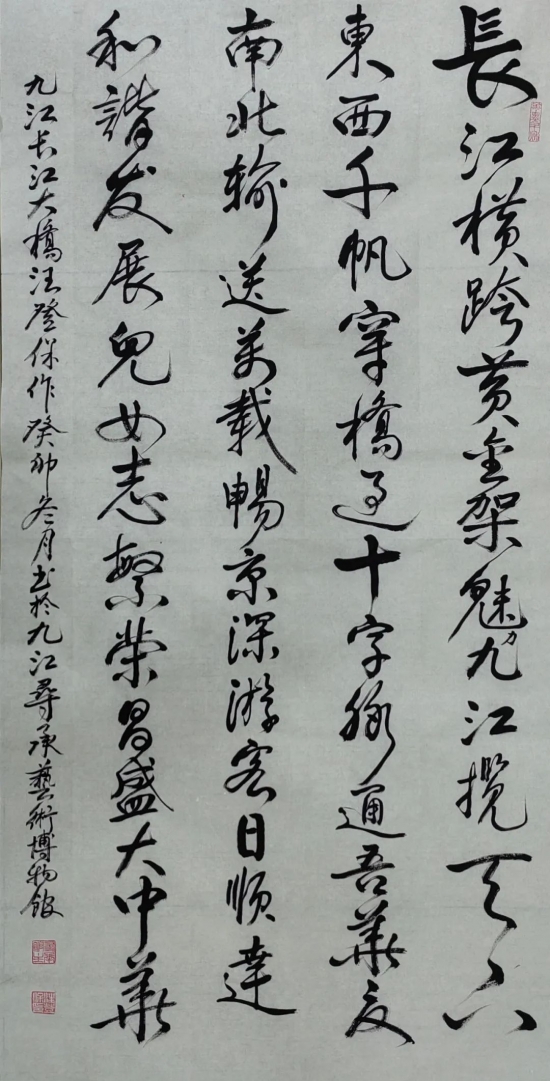 長江横跨黄金架魅力九江攬天下
東西千帆穿橋過十字脉通吾華夏
南北輸送萬載暢京深游客日順達
和諧发展兒女志繁榮昌盛大中華
九江长江大橋汪登保作癸卯冬月书於九江尋承藝術博物館